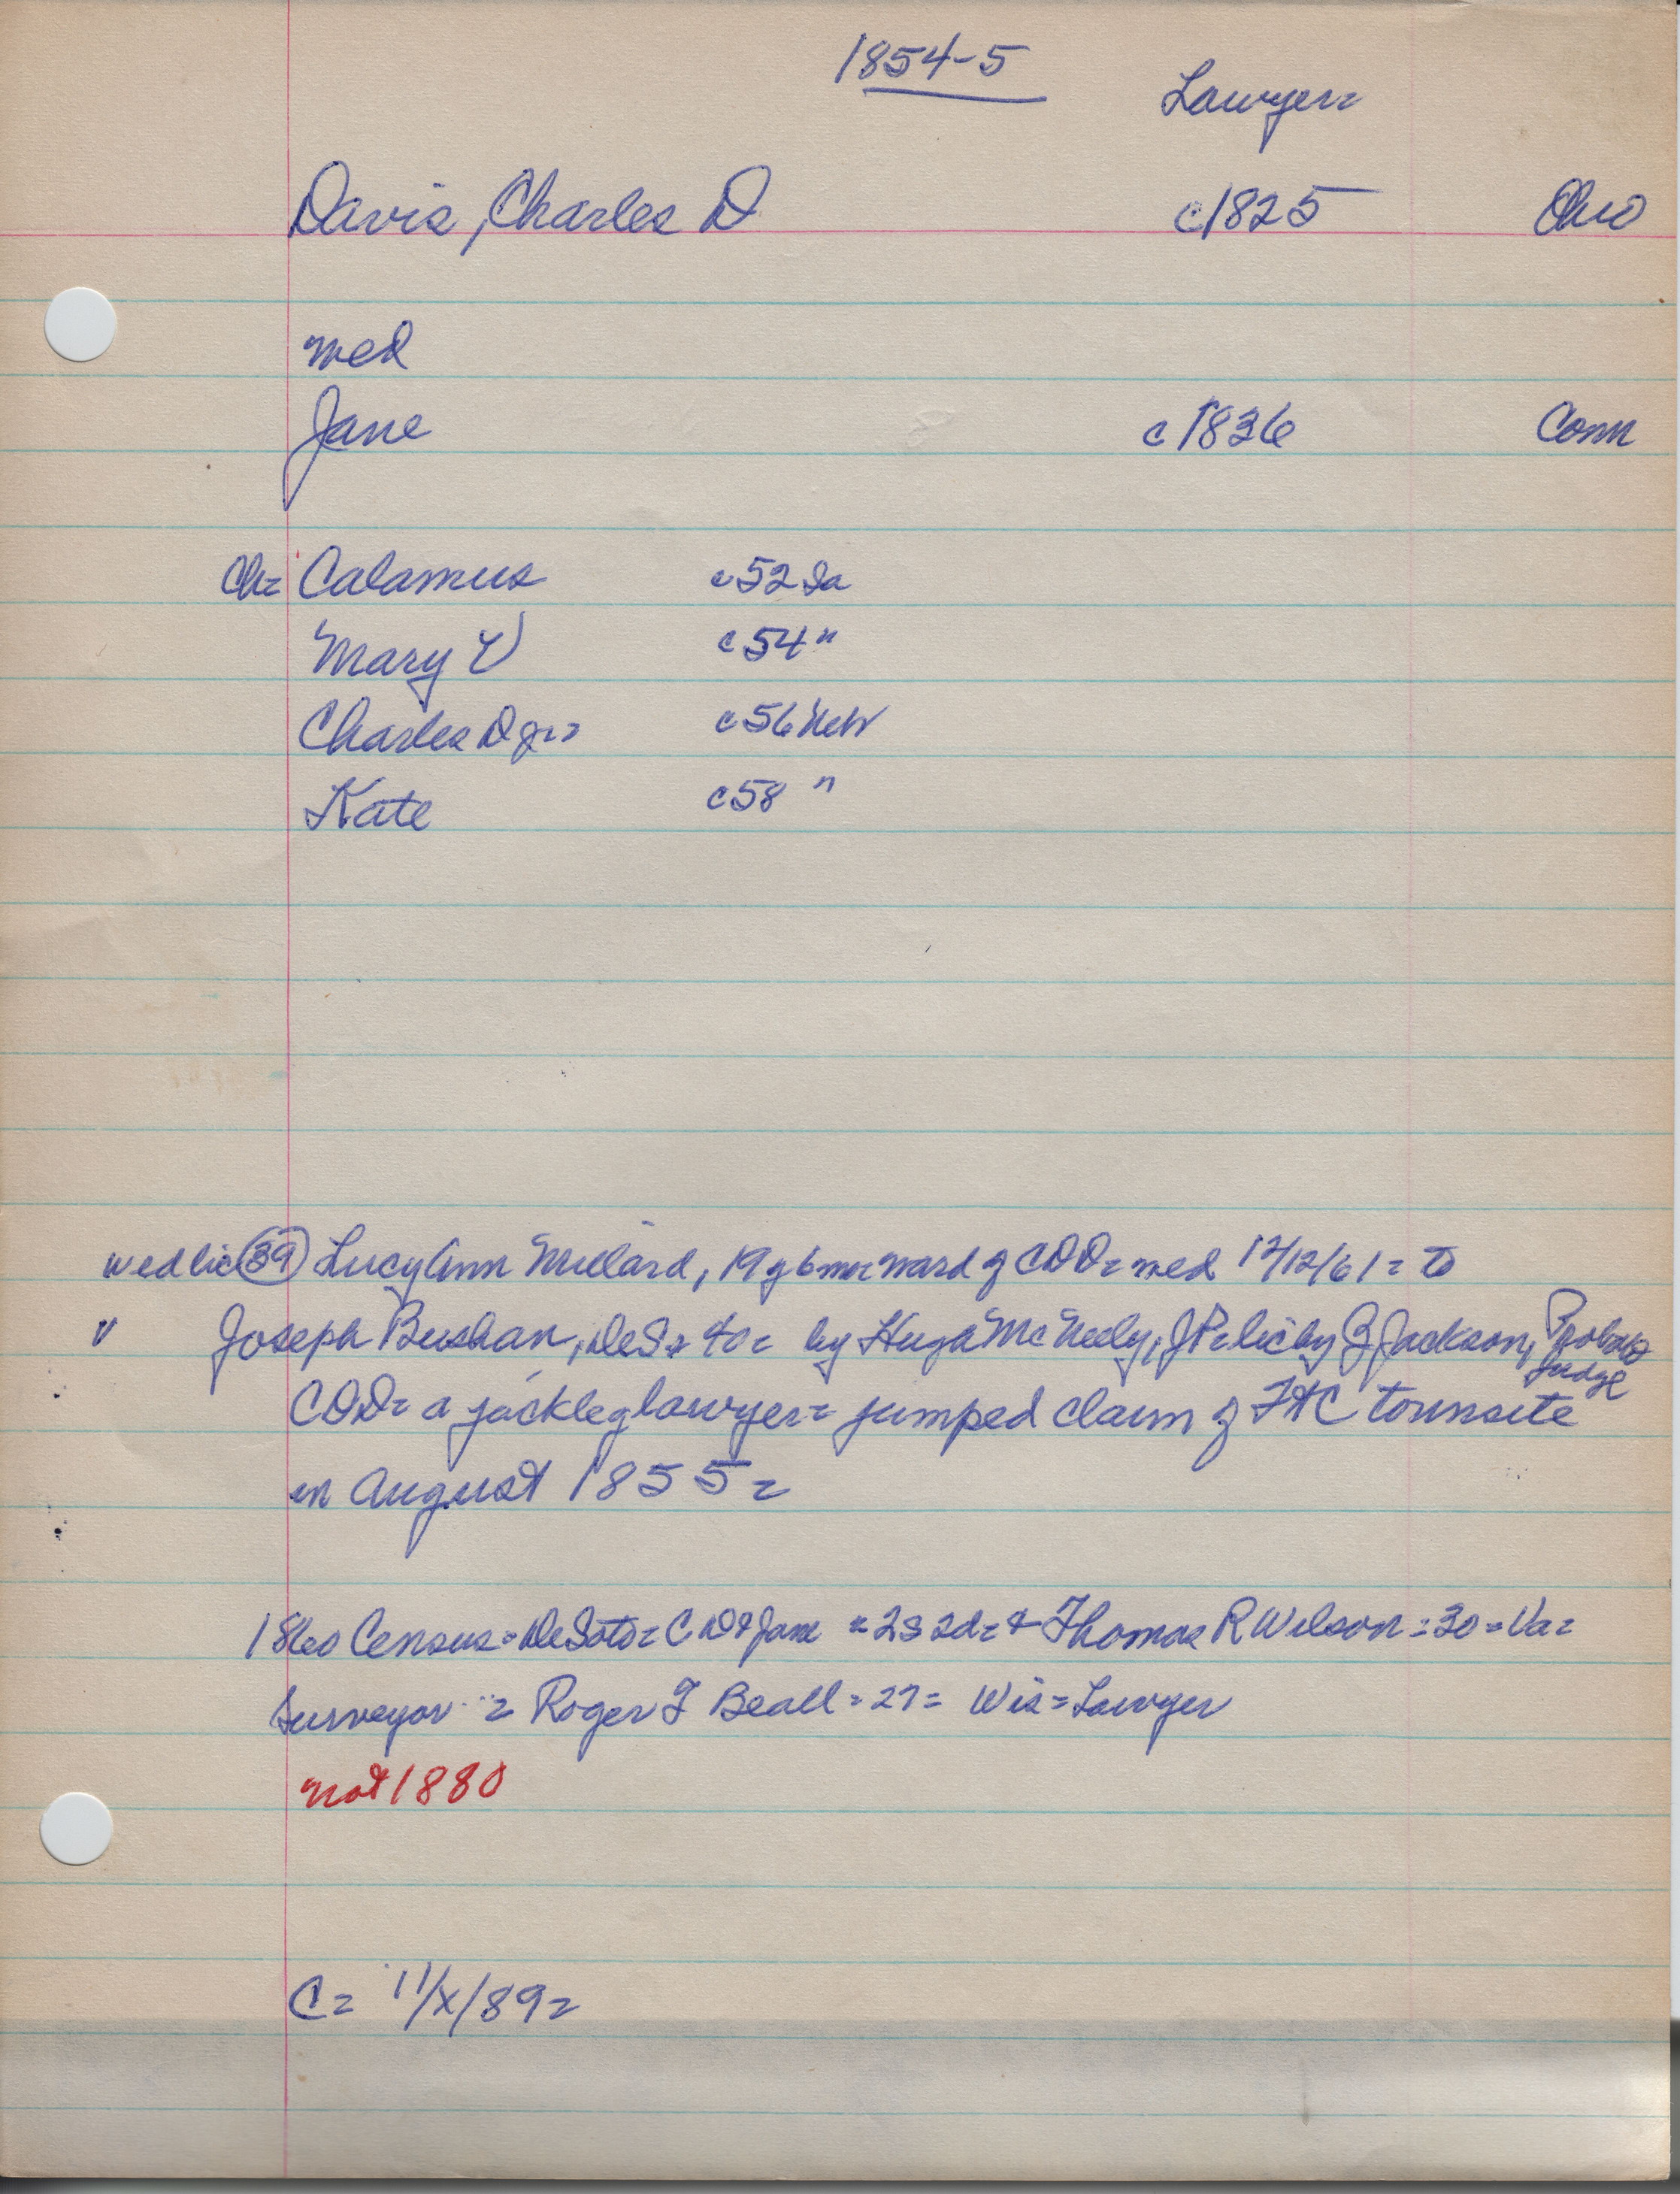 1854-5
Lawyer=
Davis, Charles D c1825 Ohio
wed
Jane c1836 Conn
Ch= Calamus c52 Ia
Mary V c54 "
Charles D Jr= c56 Neb
Kate c58 "
wed lic (39) Lucy Ann Millard, 19y6mo= ward of CDD= wed 12/12/61= to
" Joseph Bushan, DeS= 40= by Hugh McNeely, JP= lic by J Jackson, Probate
Judge
CDD= a jackleg lawyer= jumped claim of FtC townsite
in August 1855=
1860 Census= DeSoto= CD & Jane = 2s 2d= & Thomas R Wilson= 30= Va=
Surveyor = Roger T Beall= 27= Wis= Lawyer
not 1880
C= 11/X/89=